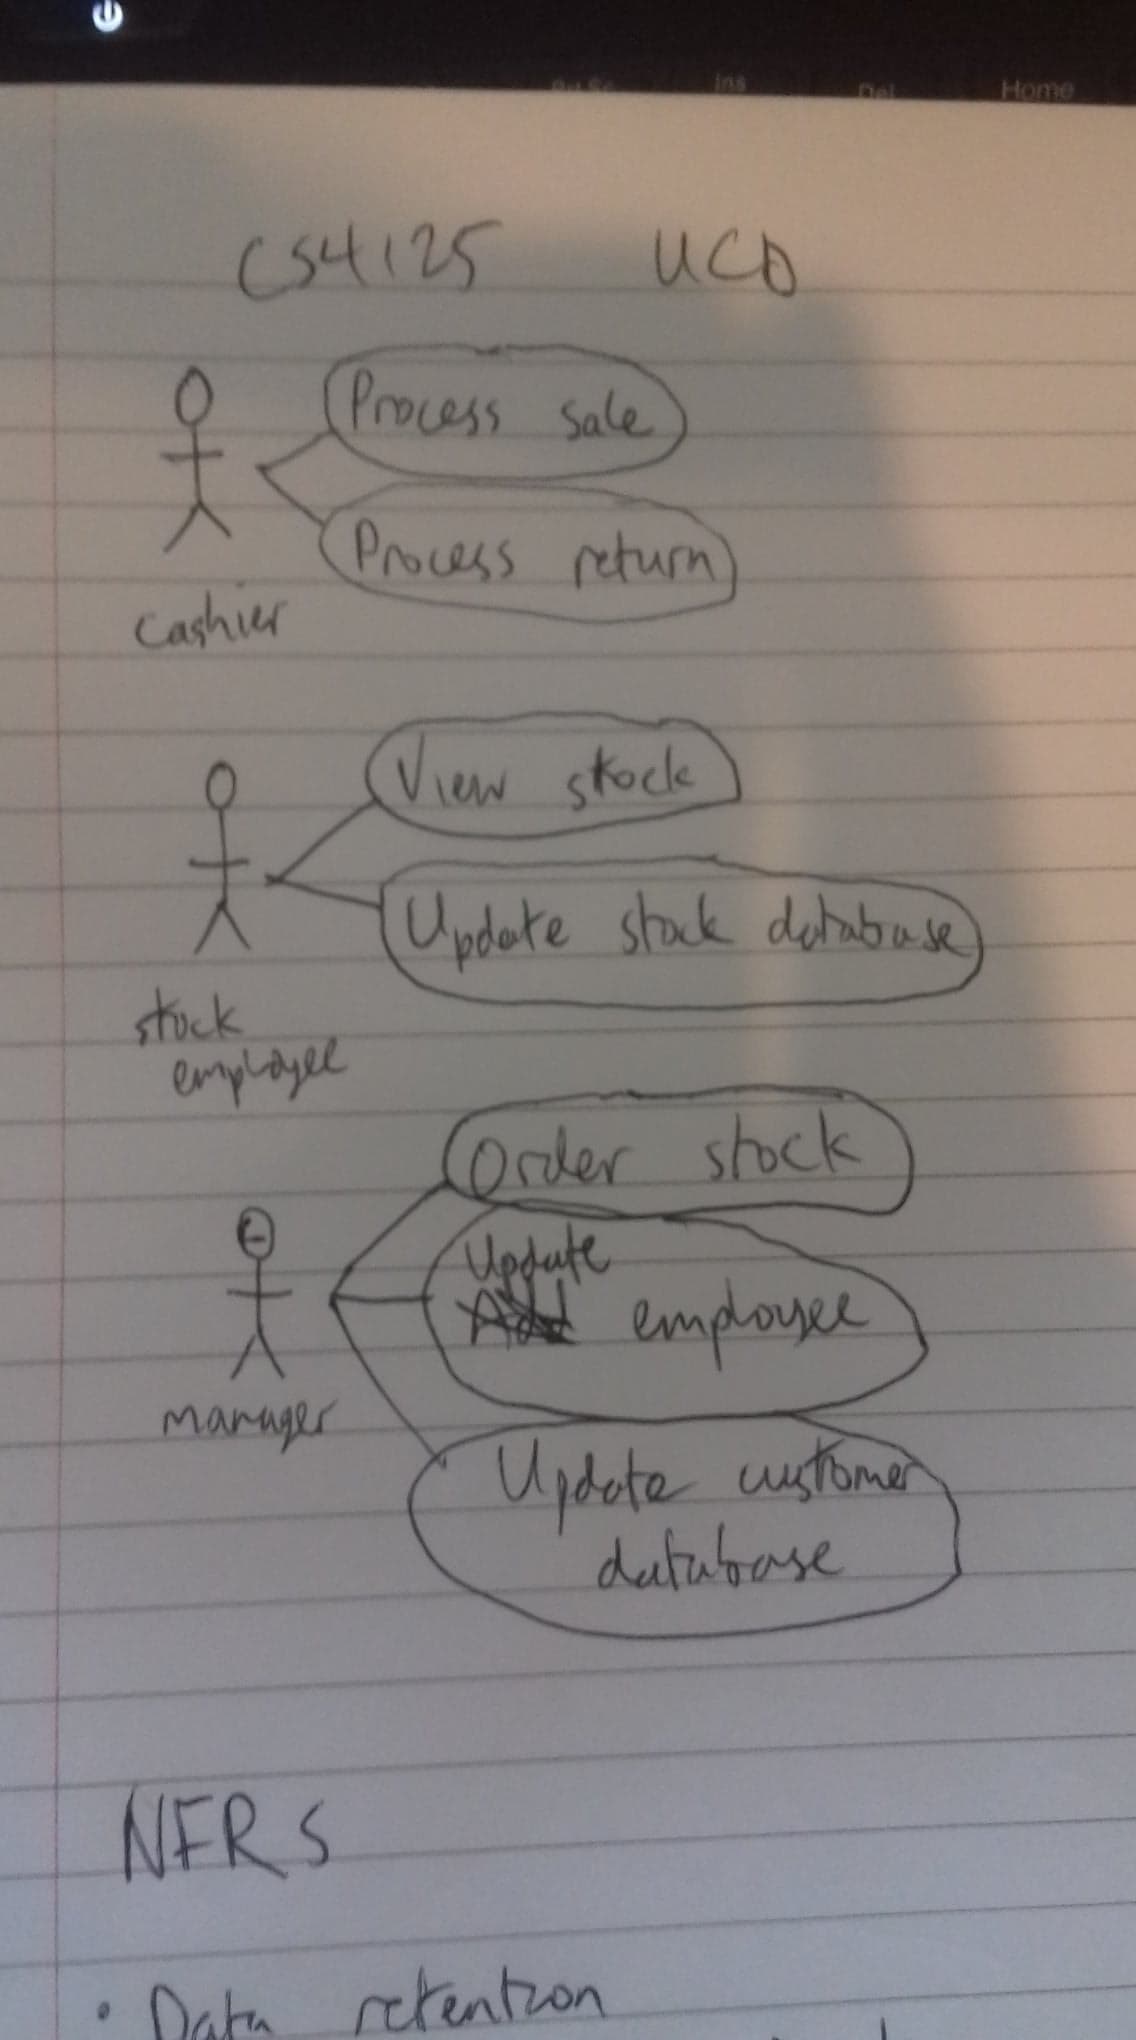 Ins
Del
Home
CS4125 UCD
Process sale
Process return
cashier
View stock
Update stock database
stock
employee
Order stock
Update
Add employee
manager
Update customer
database
NFRs
• Data retention